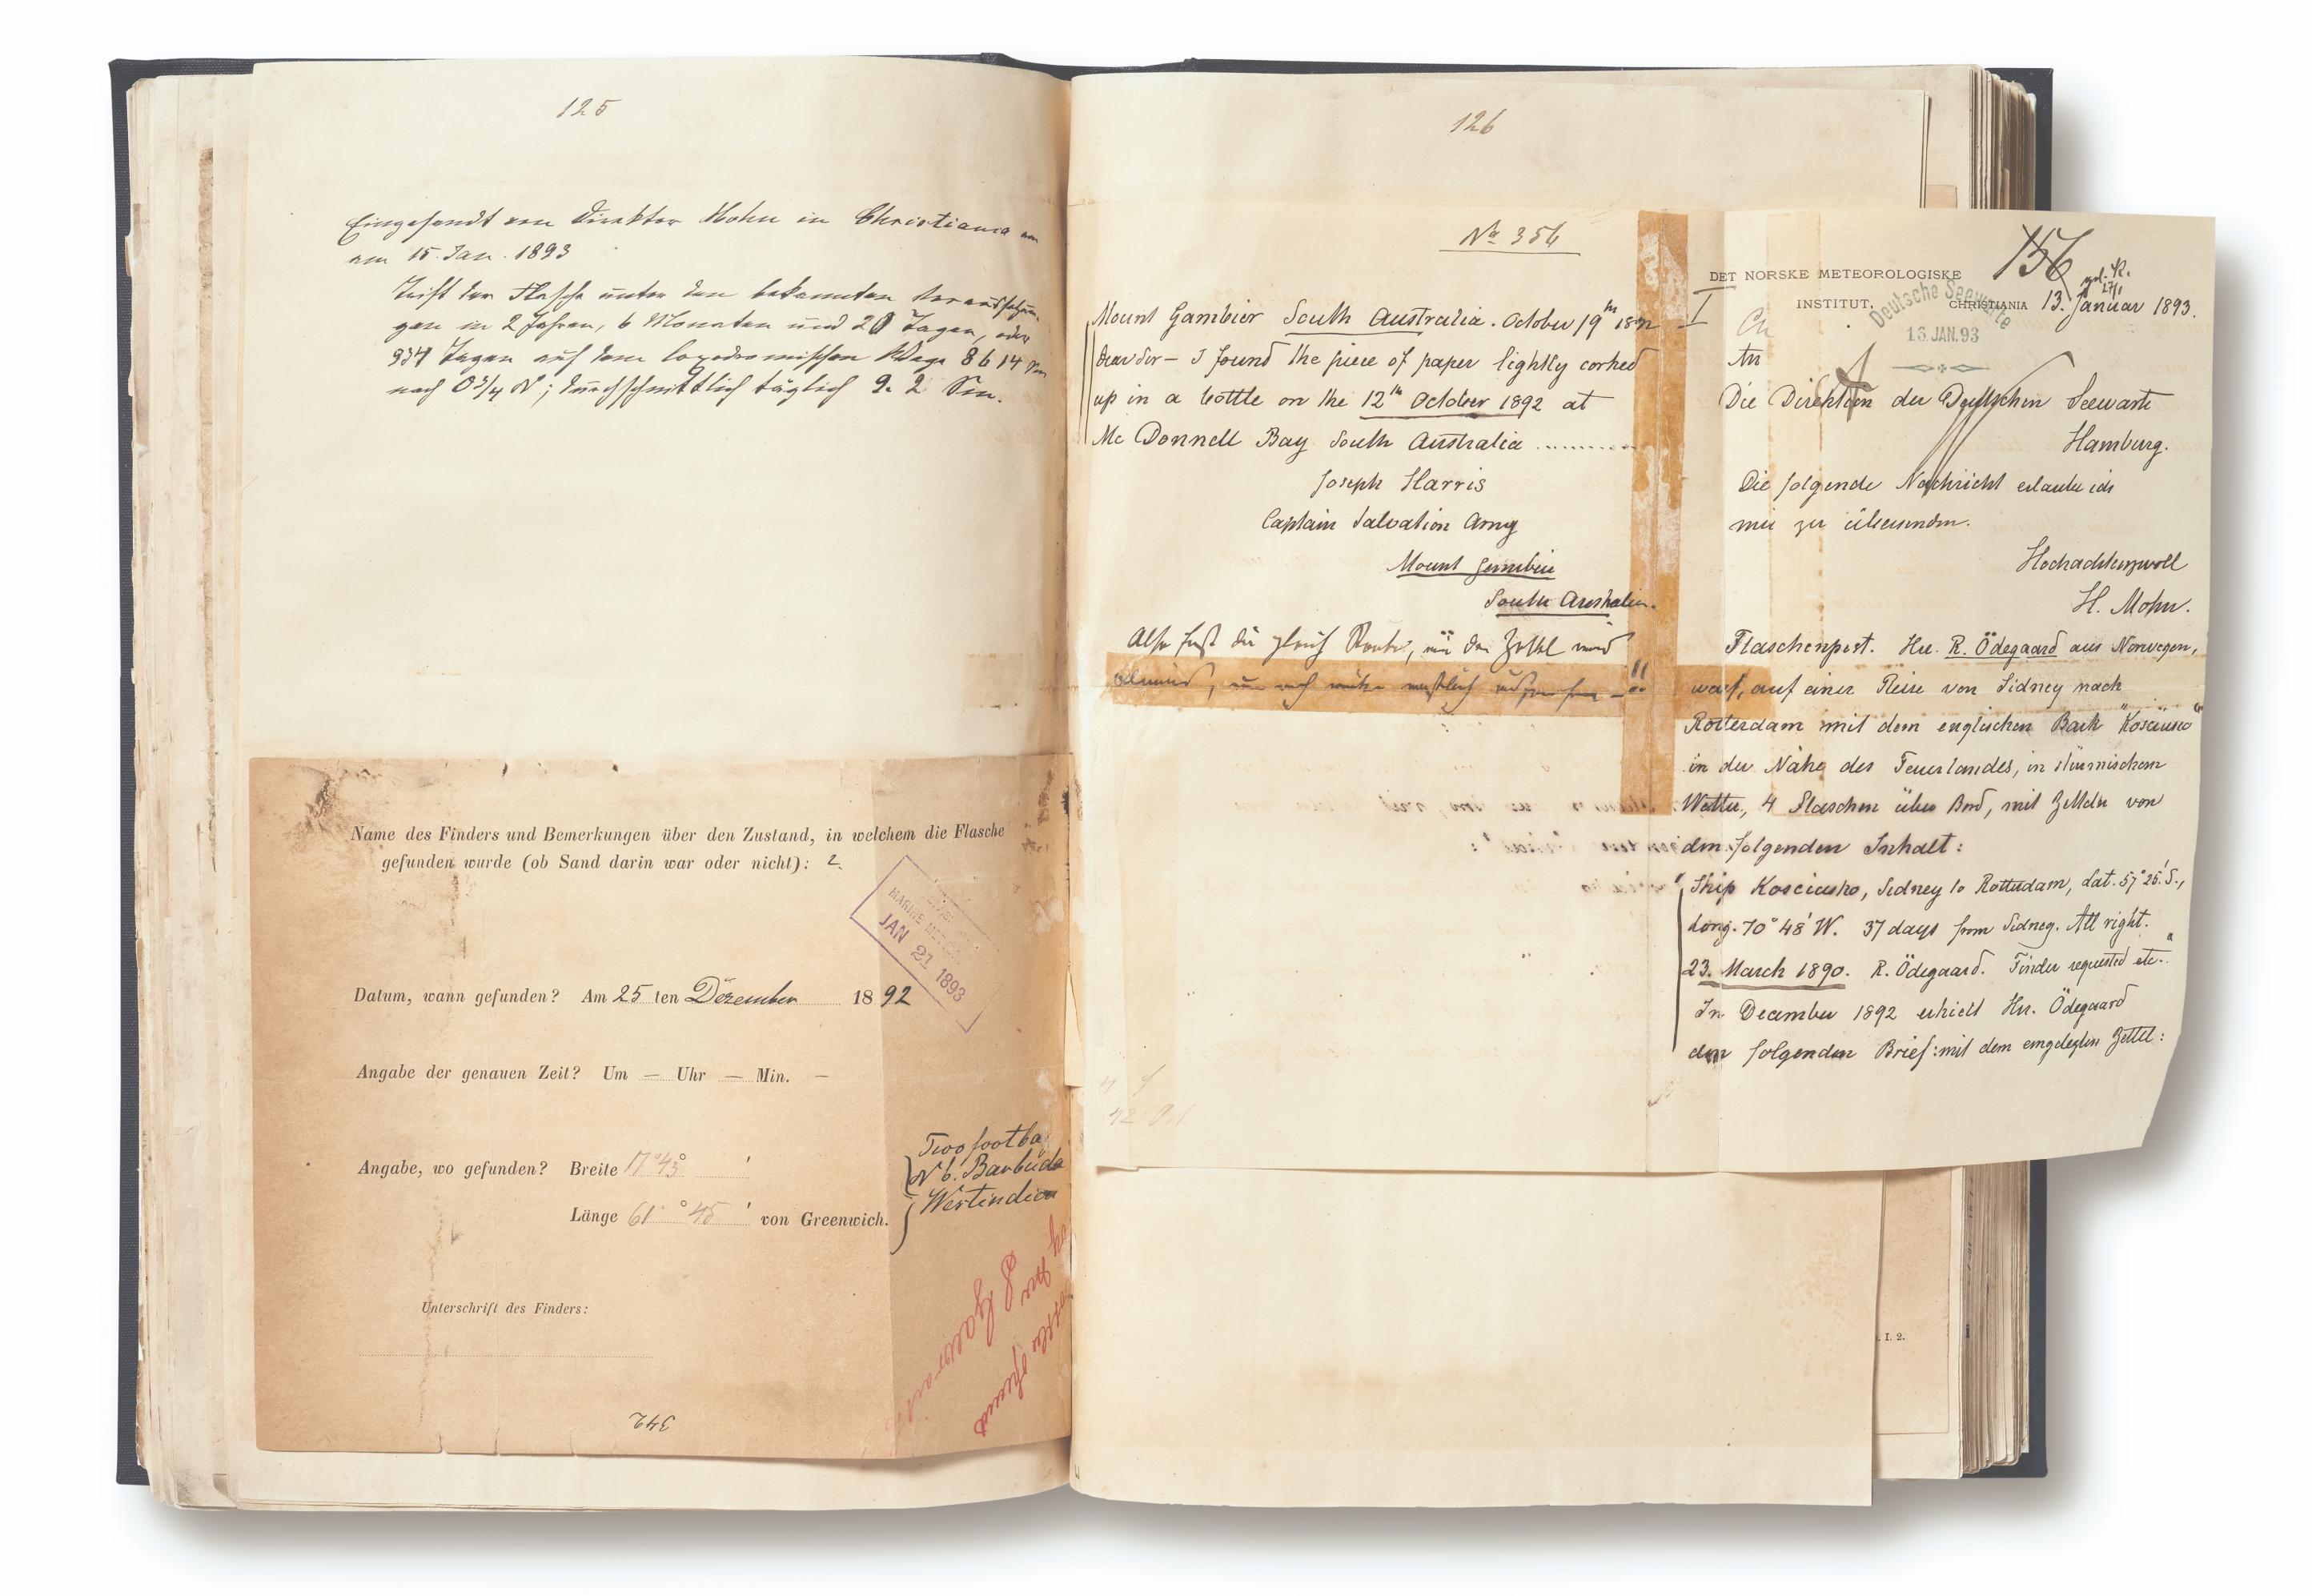 125
Eingesandt von Direktor Mohn in Christiania
am 15. Jan. 1893
Trift der Flasche unter den bekannten
gen in 2 Jahren, 6 Monaten und 20 Tagen, oder
934 Tagen auf dem loxodromischen Wege 8614 Sm
nach O3/4 N; durchschnittlich täglich 9.2 Sm.
Name des Finders und Bemerkungen über den Zustand, in welchem die Flasche
gefunden wurde (ob Sand darin war oder nicht): 2.
MARINE
JAN 21 1893
Datum, wann gefunden? Am 25 ten Dezember 1892
Angabe der genauen Zeit? Um — Uhr — Min. —
Angabe, wo gefunden? Breite 17° 43° '
Länge 61° 45' von Greenwich.
Two foot ba
N b. Barbuda
Westindien
Unterschrift des Finders:
342
126
No 356
Mount Gambier South Australia. October 19th 1892
Dear Sir — I found the piece of paper lightly corked
up in a bottle on the 12th October 1892 at
Mc Donnell Bay South Australia ..........
Joseph Harris
Captain Salvation Army
Mount Gambier
South Australia.
Also fast die gleich Route, wie der Zettel
156
DET NORSKE METEOROLOGISKE
INSTITUT,
CHRISTIANIA 13. Januar 1893.
Deutsche Seewarte
16. JAN. 93
I
An
Die Direktion der Deutschen Seewarte
Hamburg.
Die folgende Nachricht erlaube ich
mir zu übersenden.
Hochachtungsvoll
H. Mohn.
Flaschenpost. Hr. R. Ödegaard aus Norwegen,
warf, auf einer Reise von Sidney nach
Rotterdam mit dem englischen Bark "Kosciusco"
in der Nähe des Feuerlandes, in stürmischem
Wetter, 4 Flaschen über Bord, mit Zetteln von
den folgenden Inhalt:
"Ship Kosciusko, Sidney to Rotterdam, Lat. 57° 25' S.,
Long. 70° 48' W. 37 days from Sidney. All right.
23. March 1890. R. Ödegaard. Finder requested etc."
In December 1892 erhielt Hr. Ödegaard
den folgenden Brief: mit dem eingelegten Zettel:
I. 2.